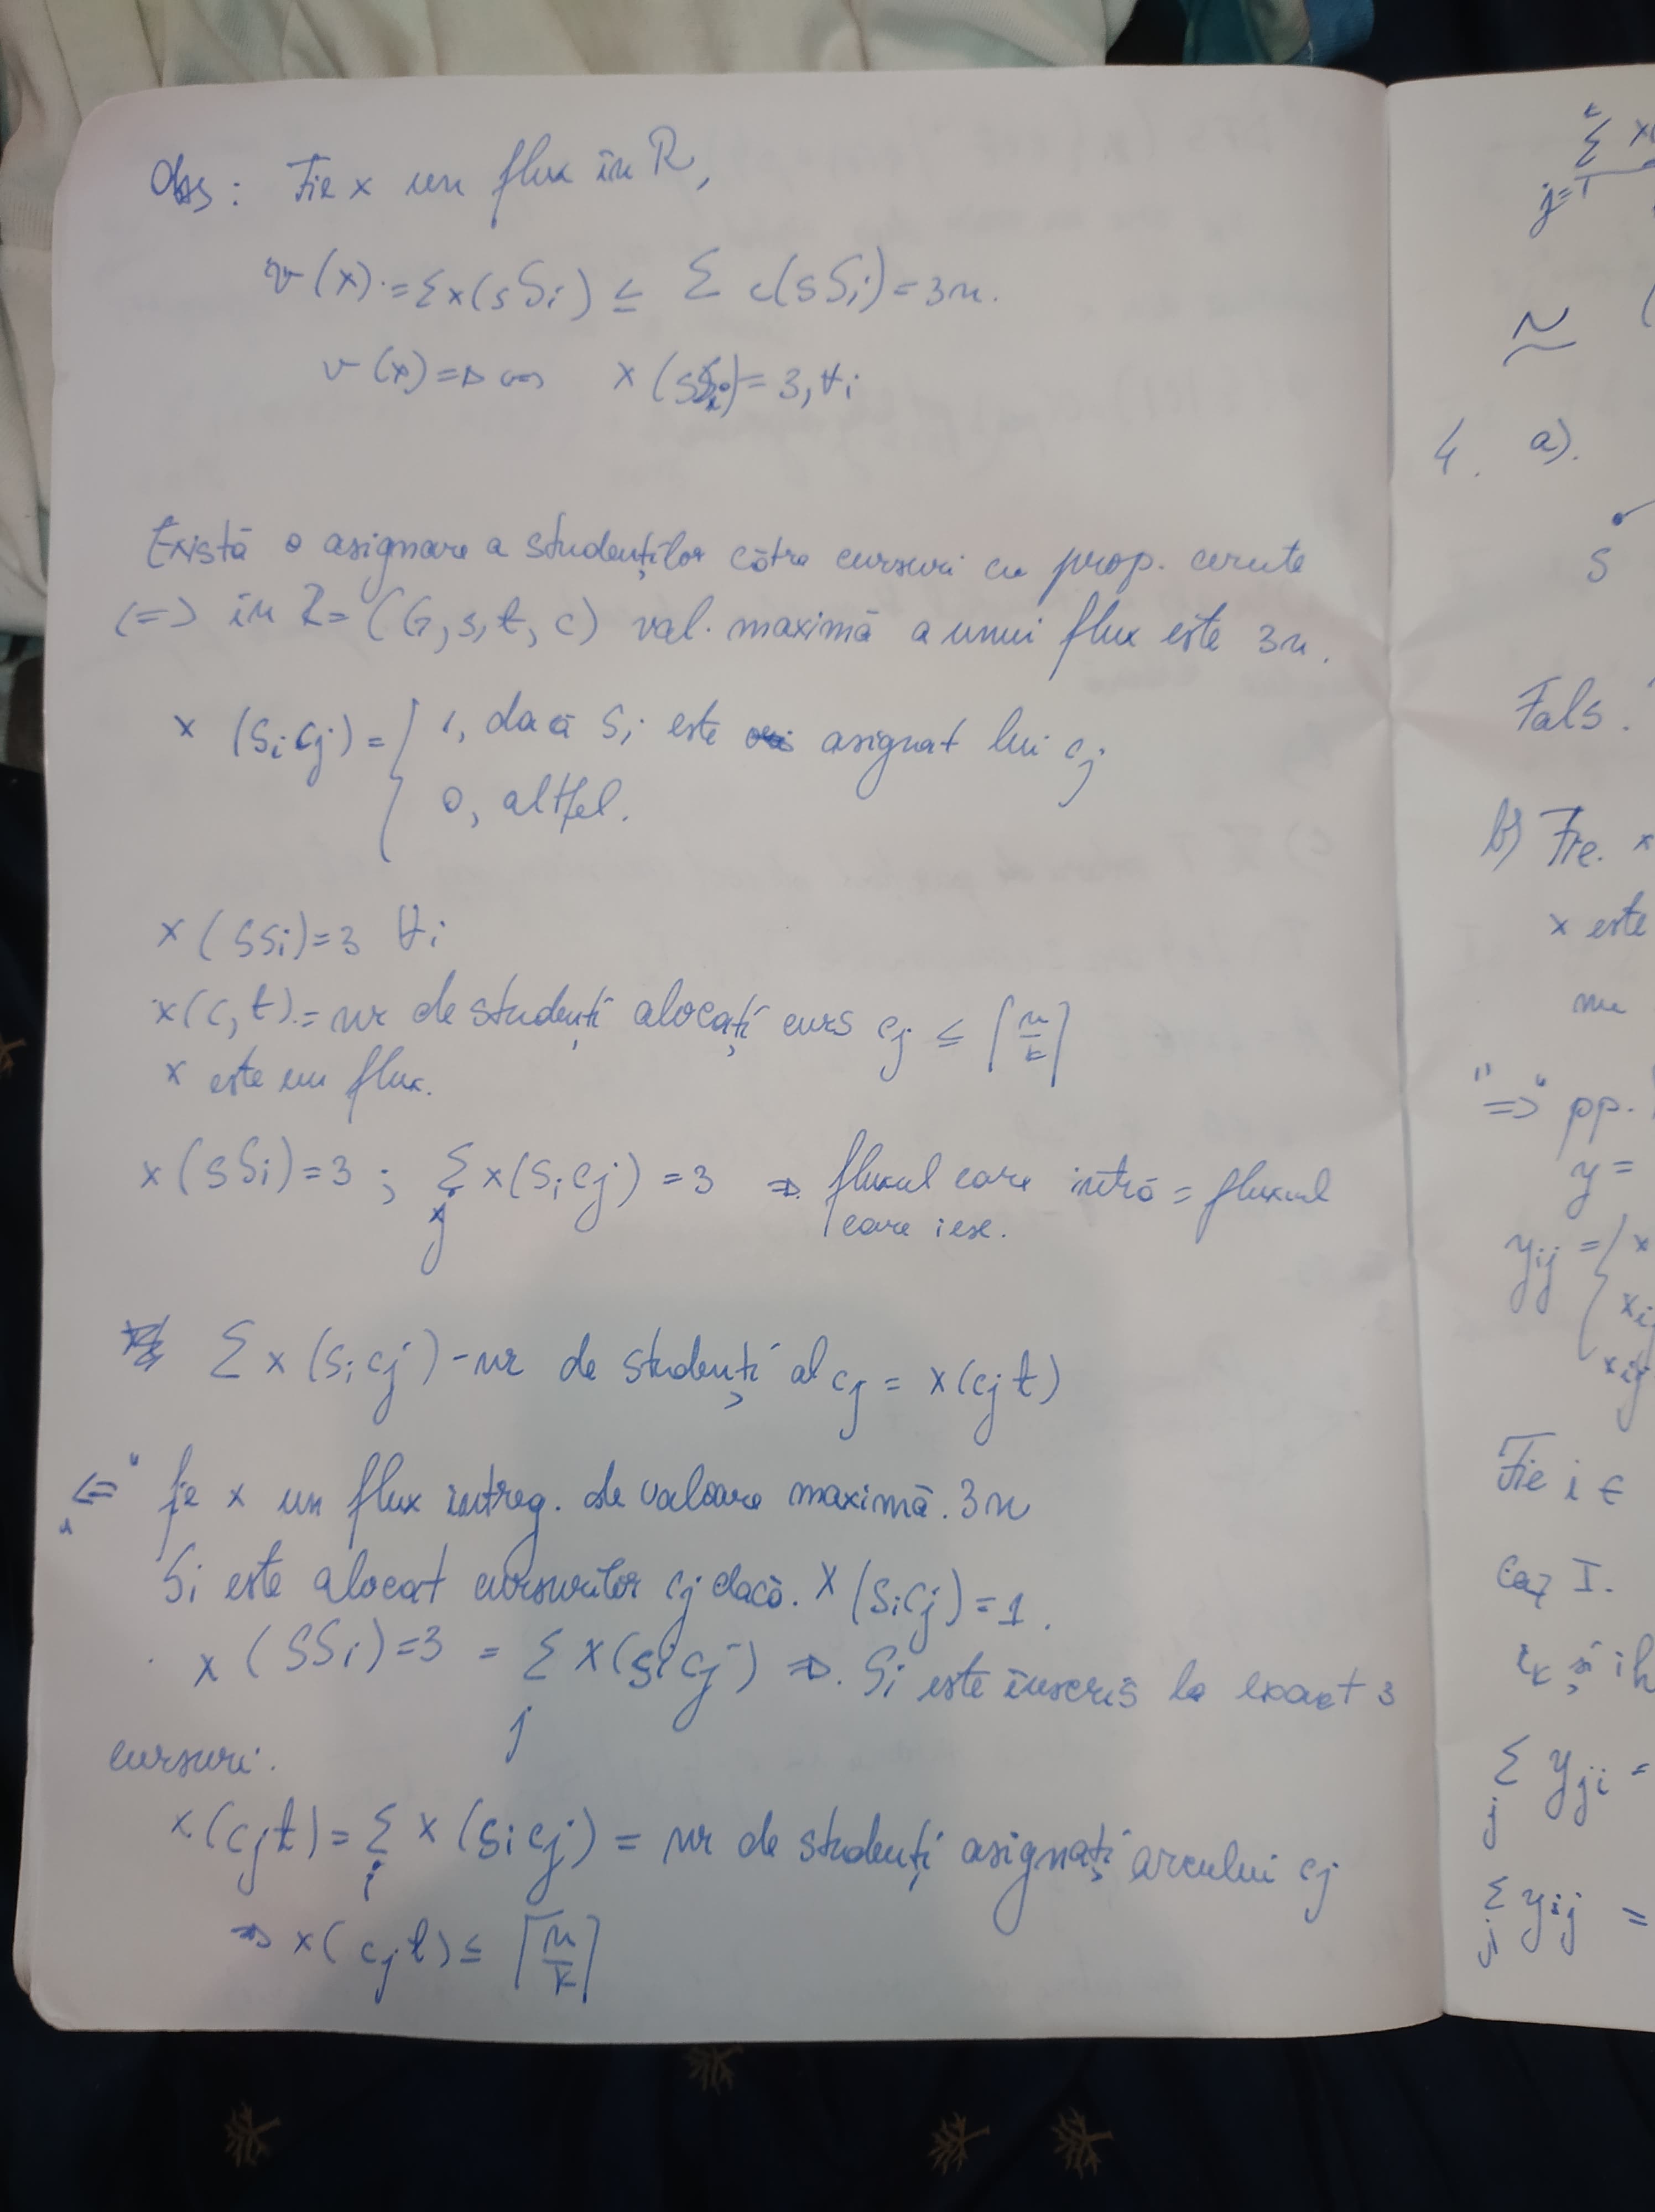 Obs: Fie x un flux în R,
v(x) = Σx(sSi) ≤ Σ c(sSi) = 3n.
v(x) = x(sSi) = 3, ∀i
Există o asignare a studenților către cursuri cu prop. cerute
<=> in R=(G,s,t,c) val. maximă a unui flux este 3n.
x (Sicj) = { 1, dacă Si este asignat lui cj
0, altfel.
x(SSi)=3 ∀i
x(c,t) = nr de studenți alocați curs cj ≤ ⌈n/k⌉
x este un flux.
x(sSi)=3 ; Σ x(Sicj) = 3 => fluxul care intră = fluxul
j
care iese.
Σ x(Sicj) - nr de studenți al cj = x(cjt)
"<=" fie x un flux intreg. de valoare maximă. 3n
Si este alocat cursurilor cj dacă. x(Sicj)=1.
x(SSi)=3 = Σ x(Sicj) => Si este înscris la exact 3
j
cursuri.
x(cjt) = Σ x(Sicj) = nr de studenți asignați arcului cj
i
=> x(cjt) ≤ ⌈n/k⌉
Σ
j=1
~
4. a).
s
Fals.
b) Fie. x
x este
nu
"=>" pp.
y =
yij = { x
xij
xij
Fie i ∈
Caz I.
ik și ih
Σ yji =
j
Σ yij =
j